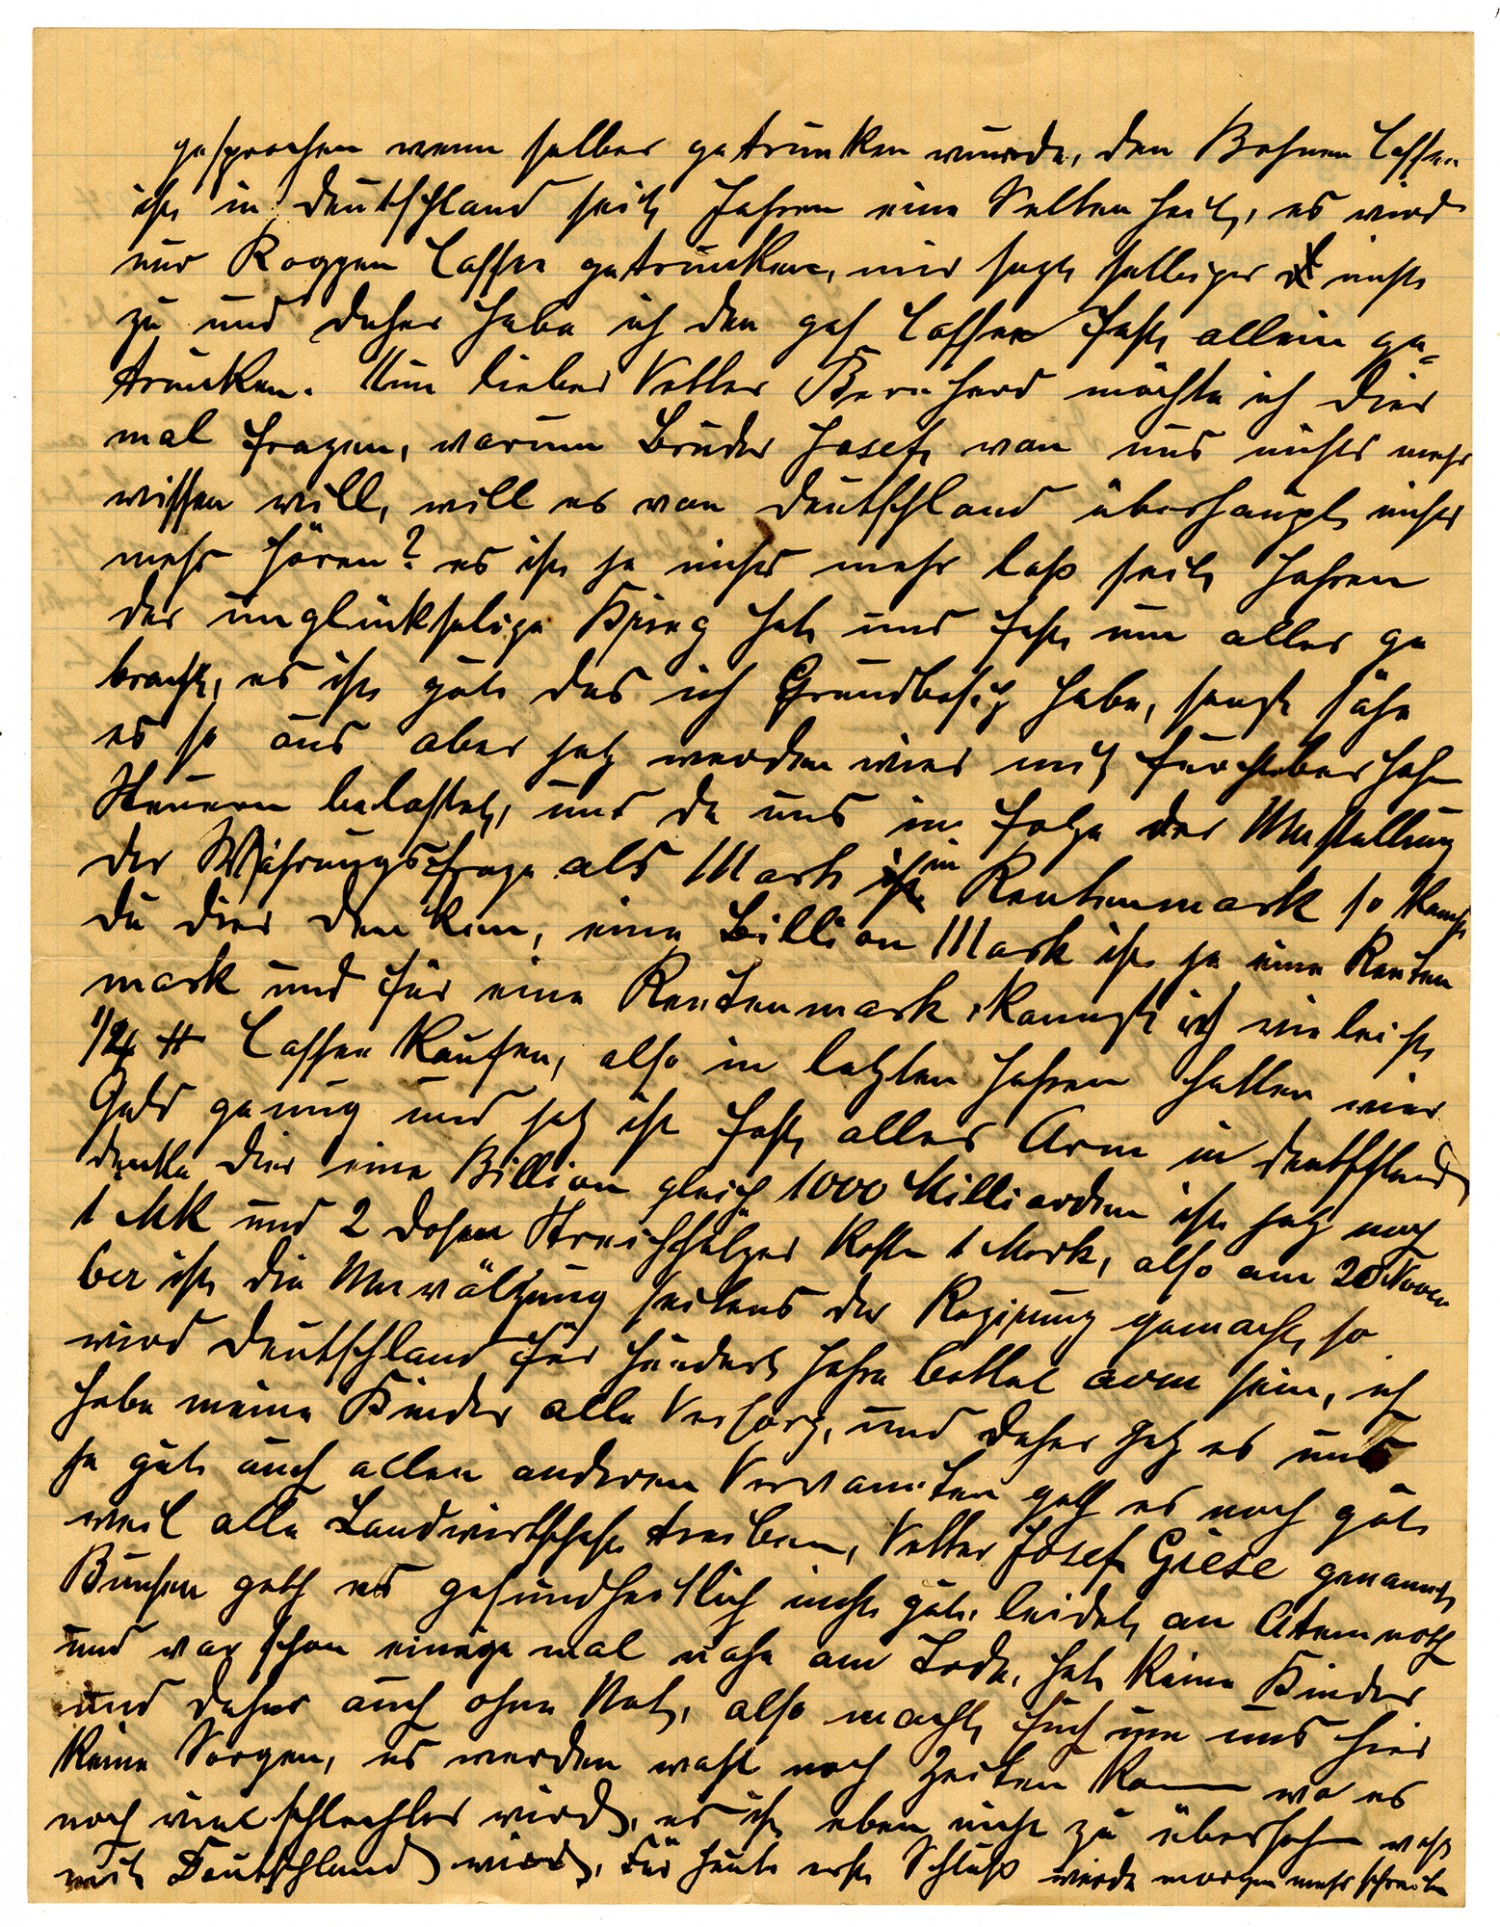 gesprochen wenn selber getrunken wurde, den Bohnen Caffee
ist in Deutschland seit Jahren eine Seltenheit, es wird
nur Roggen Caffee getrunken, mir sagte selbiger nicht
zu und daher habe ich den Caffee fast allein ge-
trunken. Nun lieber Vetter Bernhard möchte ich Dier
mal fragen, warum Bruder Josef von uns nichts mehr
wissen will, will es von Deutschland überhaupt nichts
mehr hören? es ist ja nichts mehr loß seit Jahren
der unglükselige Krieg hat uns fast um alles ge
bracht, es ist gut das ich Grundbesitz habe, sonst sähe
es so aus aber jetz werden wier mit furchtbar hohen
Steuern belastet, uns da uns in folge der Umstellung
der Währungsfrage als Mark in Rentenmark so kannst
Du dier denken, eine Billion Mark ist ja eine Renten
mark und für eine Rentenmark kannst ich vieleicht
1/2 ℔ Caffee kaufen, also in letzten Jahren hatten wier
Geld genung und jetz ist fast alles Arm in Deutschland
denke Dier eine Billion gleich 1000 Milliarden ist jetz noch
1 MK und 2 Dosen Streichhölzer kosten 1 Mark, also am 20 Novem
ber ist die Umwälzung seitens der Regirung gemacht, so
wird Deutschland für hundert Jahre bettel arm sein, ich
habe meine Kinder alle Versorg, und daher getz es uns
ja gut auch allen anderen Verwanten geth es noch gut
weil alle Landwirtschaft treiben, Vetter Josef Giese genannt
Bunsen geth es gesundheitlich nicht gut, leidet an Atemnoth
und war schon einige mal nahe am Tode, hat keine Kinder
und daher auch ohne Not, also macht Euch um uns hier
keine Sorgen, es werden wohl noch Zeiten kommen wo es
noch viel schlechter wird, es ist eben nicht zu übersehen was
mit Deutschland wird, Für heute erst Schluß werde morgen mehr schreiben